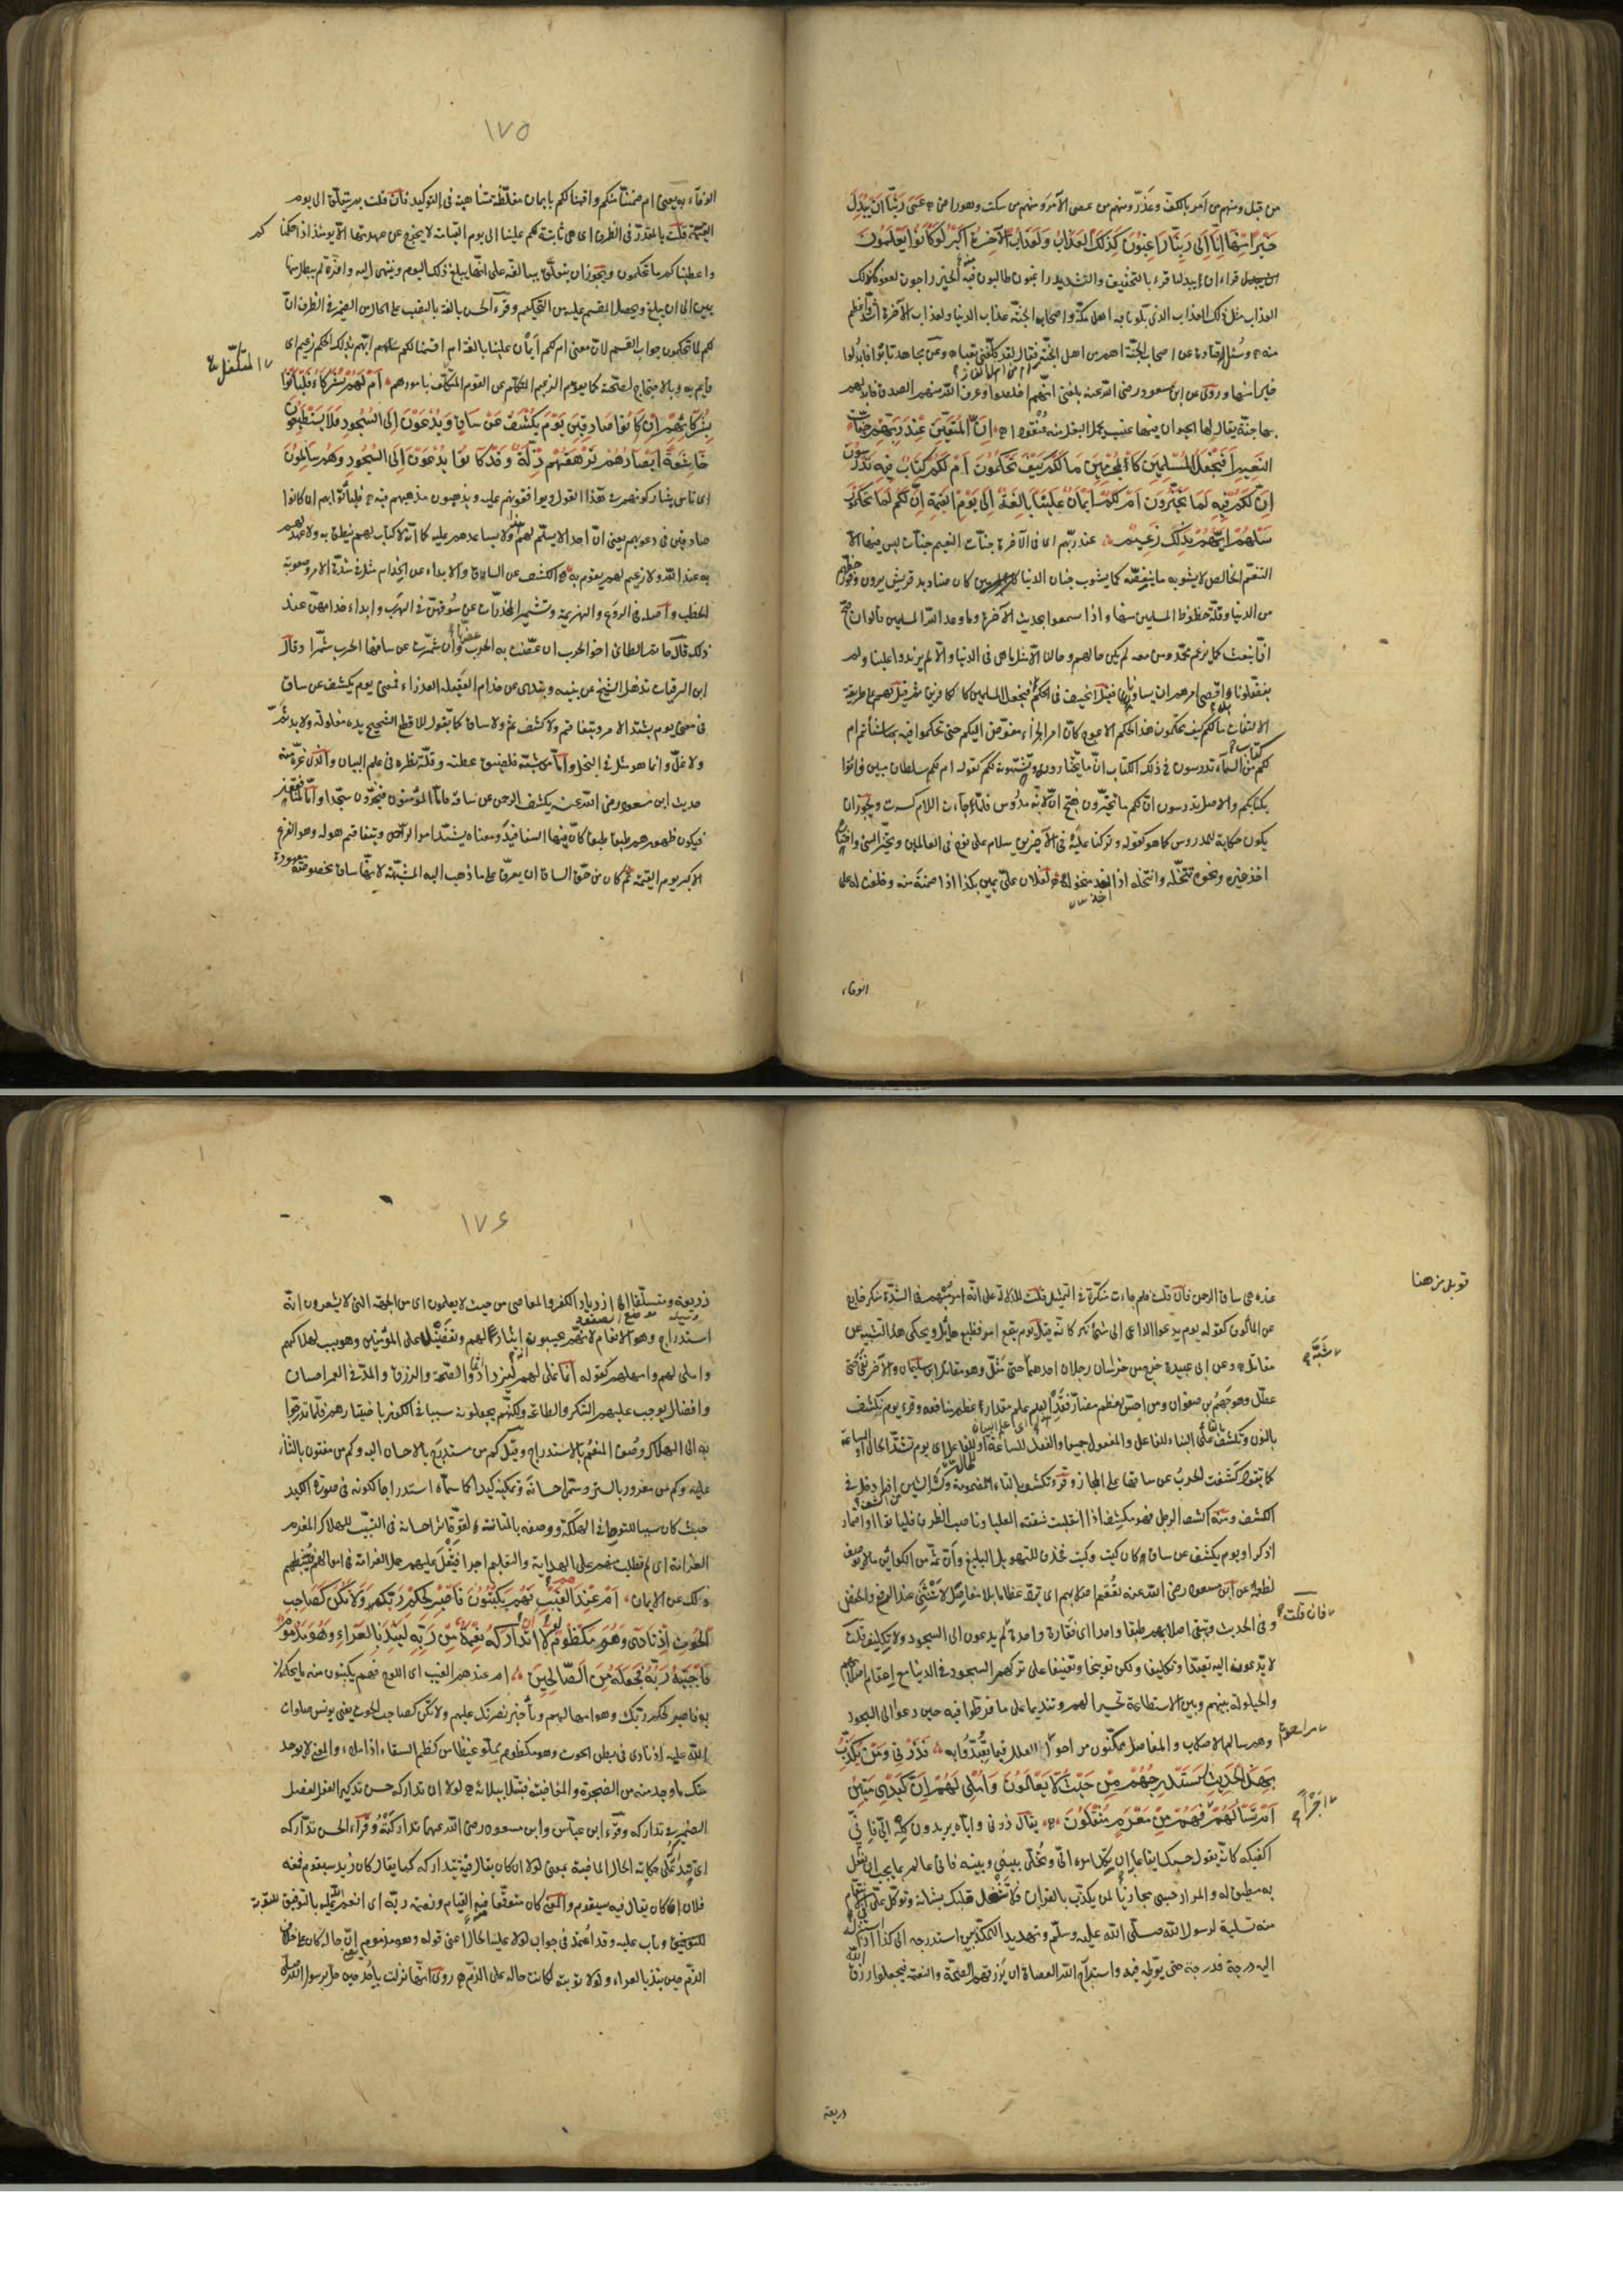 من قبل ومنهم من امر بالكف وعذر ومنهم من عصى الآمر ومنهم من سكت وهو راض عَسَى رَبُّنَا اَنْ يُبْدِلَنَا
خَيْرًا مِنْهَا اِنَّا اِلَى رَبِّنَا رَاغِبُونَ كَذَلِكَ الْعَذَابُ وَلَعَذَابُ الْآخِرَةِ اَكْبَرُ لَوْ كَانُوا يَعْلَمُونَ
قراء ان يبدلنا قرء بالتخفيف والتشديد راغبون طالبون منه الخير راجون لعفوه كذلك
العذاب مثل ذلك العذاب الذى بلونا به اهل مكة واصحاب الجنة عذاب الدنيا ولعذاب الآخرة اشد واعظم
منه وسئل قتادة عن اصحاب الجنة اهم من اهل الجنة ام من اهل النار فقال لقد كلفتنى تعبا وعن مجاهد تابوا فابدلوا
خيرا منها وروى عن ابن مسعود رضى الله عنه بلغنى انهم اخلصوا وعرف الله منهم الصدق فابدلهم
بها جنة يقال لها الحيوان فيها عنب يحمل البغل منه عنقودا اِنَّ لِلْمُتَّقِينَ عِنْدَ رَبِّهِمْ جَنَّاتِ
النَّعِيمِ اَفَنَجْعَلُ الْمُسْلِمِينَ كَالْمُجْرِمِينَ مَا لَكُمْ كَيْفَ تَحْكُمُونَ اَمْ لَكُمْ كِتَابٌ فِيهِ تَدْرُسُونَ
اِنَّ لَكُمْ فِيهِ لَمَا تَخَيَّرُونَ اَمْ لَكُمْ اَيْمَانٌ عَلَيْنَا بَالِغَةٌ اِلَى يَوْمِ الْقِيَمَةِ اِنَّ لَكُمْ لَمَا تَحْكُمُونَ
سَلْهُمْ اَيُّهُمْ بِذَلِكَ زَعِيمٌ عند ربهم اى فى الآخرة جنات النعيم جنات ليس فيها الا
التنعم الخالص لا يشوبه ما ينغصه كما يشوب جنان الدنيا كان صناديد قريش يرون وفور حظهم
من الدنيا وقلة حظوظ المسلمين منها واذا سمعوا بحديث الآخرة وما وعد الله المسلمين قالوا ان صح
انا نبعث كما يزعم محمد ومن معه لم يكن حالهم وحالنا الا مثل ما هى فى الدنيا والا لم يزيدوا علينا ولم
يفضلونا واقصى امرهم ان يساوونا فقيل انحيف فى الحكم فنجعل المسلمين كالكافرين ثم قيل لهم على طريقة
الالتفات ما لكم كيف تحكمون هذا الحكم الاعوج كان امر الجزاء مفوض اليكم حتى تحكموا فيه بما شئتم ام
لكم كتاب من السماء تدرسون فى ذلك الكتاب ان ما تختارونه وتشتهونه لكم كقوله ام لكم سلطان مبين فاتوا
بكتابكم والاصل تدرسون ان لكم ما تخيرون بفتح ان لانه مدروس فلما جاءت اللام كسرت ويجوز ان
يكون حكاية للمدروس كما هو كقوله وتركنا عليه فى الآخرين سلام على نوح فى العالمين وتخير الشئ واختاره
اخذ خيره ونحوه تنخله وانتخله اذا اخذ منخوله لفلان على يمين بكذا اذا ضمنته منه وحلفت له على
الوفاء
١٧٥
الوفاء به يعنى ام ضمنا منكم واقسمنا لكم بايمان مغلظة متناهية فى التوكيد فان قلت بم يتعلق الى يوم
القيمة قلت بالمقدر فى الظرف اى هى ثابتة لكم علينا الى يوم القيامة لا نخرج عن عهدتها الا يومئذ اذا حكمناكم
واعطيناكم ما تحكمون ويجوز ان يتعلق ببالغة على انها تبلغ ذلك اليوم وتنتهى اليه وافرة لم يبطل منها
يمين الى ان يبلغ ويحصل المقسم عليه من التحكيم وقرء الحسن بالغة بالنصب على الحال من الضمير فى الظرف ان
لكم لما تحكمون جواب القسم لان معنى ام لكم ايمان علينا بالغة ام اقسمنا لكم سلهم ايهم بذلك الحكم زعيم اى
قايم به وبالاحتجاج لصحته كما يقوم الزعيم المتكلم عن القوم المتكفل بامورهم اَمْ لَهُمْ شُرَكَاءُ فَلْيَأْتُوا
المتكفل
بِشُرَكَائِهِمْ اِنْ كَانُوا صَادِقِينَ يَوْمَ يُكْشَفُ عَنْ سَاقٍ وَيُدْعَوْنَ اِلَى السُّجُودِ فَلَا يَسْتَطِيعُونَ
خَاشِعَةً اَبْصَارُهُمْ تَرْهَقُهُمْ ذِلَّةٌ وَقَدْ كَانُوا يُدْعَوْنَ اِلَى السُّجُودِ وَهُمْ سَالِمُونَ
اى ناس يشاركونهم فى هذا القول ويوافقونهم عليه ويذهبون مذهبهم فيه فليأتوا بهم ان كانوا
صادقين فى دعويهم يعنى ان احدا لا يسلم لهم هذا ولا يساعدهم عليه كما انه لا كتاب لهم ينطق به ولا عهد لهم
به عند الله ولا زعيم لهم يقوم به الكشف عن الساق والابداء عن الخدام مثل فى شدة الامر وصعوبة
الخطب واصله فى الروع والهزيمة وتشمير المخدرات عن سوقهن فى الهرب وابداء خدامهن عند
ذلك قال حاتم الطائى اخو الحرب ان عضت به الحرب عضها وان شمرت عن ساقها الحرب شمرا وقال
ابن الرقيات تذهل الشيخ عن بنيه وتبدى عن خدام العقيلة العذراء فمعنى يوم يكشف عن ساق
فى معنى يوم يشتد الامر ويتفاقم ولا كشف ثم ولا ساق كما تقول للاقطع الشحيح يده مغلولة ولا يد ثم
ولا غل وانما هو مثل فى البخل واما من شبه فلضيق عطنه وقلة نظره فى علم البيان والذى غره منه
حديث ابن مسعود رضى الله عنه يكشف الرحمن عن ساقه فاما المؤمنون فيخرون سجدا واما المنافقون
فيكون ظهورهم طبقا طبقا كان فيها السفافيد ومعناه يشتد امر الرحمن ويتفاقم هوله وهو الفزع
الاكبر يوم القيمة ثم كان من حق الساق ان يعرف على ما ذهب اليه المشبه لانها ساق مخصوصة معهودة
قوبل من هنا
عنده هى ساق الرحمن فان قلت فلم جاءت منكرة فى التمثيل قلت للدلالة على انه امر مبهم فى الشدة منكر خارج
عن المألوف كقوله يوم يدعو الداعى الى شئ نكر كانه قيل يوم يقع امر فظيع هائل ويحكى هذا التشبيه عن
مقاتل وعن ابى عبيدة خرج من خراسان رجلان احدهما حتى مثل وهو مقاتل ابن سليمان والآخر نفى حتى
شبه
عطل وهو جهم بن صفوان ومن احس بعظم مضار فقد هذا العلم علم مقدار عظم منافعه وقرء يوم نكشف
بالنون وتكشف بالتاء على البناء للفاعل والمفعول جميعا والفعل للساعة او للحال اى يوم تشتد الحال او الساعة
كما تقول كشفت الحرب عن ساقها على المجاز وقرء تكشف بالتاء المضمومة وكسر الشين من اكشف اذا دخل فى
الكشف ومنه اكشف الرجل فهو مكشف اذا انقلبت شفته العليا وناصب الظرف فليأتوا او اضمار
اذكر او يوم يكشف عن ساق كان كيت وكيت فحذف للتهويل البليغ وان ثم من الكوائن ما لا يوصف
لعظمه عن ابن مسعود رضى الله عنه تعقم اصلابهم اى ترد عظاما بلا مفاصل لا تنثنى عند الرفع والخفض
وفى الحديث وتبقى اصلابهم طبقا واحدا اى فقارة واحدة ثم يدعون الى السجود ولا تكليف قلت
فان قلت
لا يدعون اليه تعبدا وتكليفا ولكن توبيخا وتعنيفا على تركهم السجود فى الدنيا مع اعقام اصلابهم
والحيلولة بينهم وبين الاستطاعة تحسيرا لهم وتنديما على ما فرطوا فيه حين دعوا الى السجود
وهم سالم الاصلاب والمفاصل ممكنون مزاحو العلل فيما تعبدوا به فَذَرْنِى وَمَنْ يُكَذِّبُ
مزاحو
بِهَذَا الْحَدِيثِ سَنَسْتَدْرِجُهُمْ مِنْ حَيْثُ لَا يَعْلَمُونَ وَاُمْلِى لَهُمْ اِنَّ كَيْدِى مَتِينٌ
اَمْ تَسْأَلُهُمْ اَجْرًا فَهُمْ مِنْ مَغْرَمٍ مُثْقَلُونَ يقال ذرنى واياه يريدون كله الى فانى
اجرا
اكفيكه كانه يقول حسبك ايقاعا به ان تكل امره الى وتخلى بينى وبينه فانى عالم بما يجب ان يفعل
به مطيق له والمراد حسبى مجازيا لمن يكذب بالقران فلا تشغل قلبك بشانه وتوكل على فى الانتقام
منه تسلية لرسول الله صلى الله عليه وسلم وتهديد المكذبين استدرجه الى كذا اذا استنزله
اليه درجة فدرجة حتى يورطه فيه واستدراج الله العصاة ان يرزقهم الصحة والنعمة فيجعلوا رزق الله
ذريعة
١٧٦
ذريعة ومتسلقا الى ازدياد الكفر والمعاصى من حيث لا يعلمون اى من الجهة التى لا يشعرون انه
استدراج وهو الانعام لانهم يحسبونه ايثارا لهم وتفضيلا على المؤمنين وهو سبب لهلاكهم
واملى لهم وامهلهم كقوله انما نملى لهم ليزدادوا اثما والصحة والرزق والمد فى العمر احسان
وافضال يوجب عليهم الشكر والطاعة ولكنهم يجعلونه سببا فى الكفر باختيارهم فلما تدرجوا
به الى الهلاك وصف المنعم بالاستدراج وقيل كم من مستدرج بالاحسان اليه وكم من مفتون بالثناء
عليه وكم من مغرور بالستر وسمى احسانه وتمكينه كيدا كما سماه استدراجا لكونه فى صورة الكيد
حيث كان سببا للتورط فى الهلكة ووصفه بالمتانة لقوة اثر احسانه فى التسبب للهلاك المغرم
الغرامة اى لم تطلب منهم على الهداية والتعليم اجرا فيثقل عليهم حمل الغرامة فى اموالهم فيثبطهم
ذلك عن الايمان اَمْ عِنْدَهُمُ الْغَيْبُ فَهُمْ يَكْتُبُونَ فَاصْبِرْ لِحُكْمِ رَبِّكَ وَلَا تَكُنْ كَصَاحِبِ
الْحُوتِ اِذْ نَادَى وَهُوَ مَكْظُومٌ لَوْلَا اَنْ تَدَارَكَهُ نِعْمَةٌ مِنْ رَبِّهِ لَنُبِذَ بِالْعَرَاءِ وَهُوَ مَذْمُومٌ
فَاجْتَبَيهُ رَبُّهُ فَجَعَلَهُ مِنَ الصَّالِحِينَ ام عندهم الغيب اى اللوح فهم يكتبون منه ما يحكمون
به فاصبر لحكم ربك وهو امهالهم وتأخير نصرتك عليهم ولا تكن كصاحب الحوت يعنى يونس صلوات
الله عليه اذ نادى فى بطن الحوت وهو مكظوم مملو غيظا من كظم السقاء اذا ملاه والمعنى لا يوجد
منك ما وجد منه من الضجرة والمغاضبة فتبتلى ببلائه لولا ان تداركه حسن تذكير الفعل لفصل
الضمير فى تداركه وقرء ابن عباس وابن مسعود رضى الله عنهما تداركته وقراء الحسن تداركه
اى تتداركه على حكاية الحال الماضية بمعنى لولا ان كان يقال فيه تتداركه كما يقال كان زيد سيقوم فمنعه
فلان اى كان يقال فيه سيقوم والمعنى كان متوقعا منه القيام ونعمة ربه ان انعم الله عليه بالتوفيق للتوبة
وتاب عليه وقد اعتمد فى جواب لولا على الحال اعنى قوله وهو مذموم يعنى ان حاله كان على خلاف
الذم حين نبذ بالعراء ولولا توبته لكانت حاله على الذم روى انها نزلت باحد حين حل برسول الله